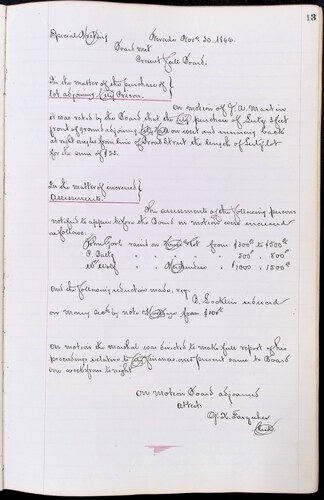 13
Special Meeting Nevada Novr 20. 1866.
Board met
Present Full Board.
In the matter of the purchase of
lot adjoining City Prison.
On motion of J. A. Martin
it was voted by the Board that the City purchase of Lutz 3 feet
front of ground adjoining City Hall on west and running back
at right angles from line of Broad Street the length of Lutz lot
for the sum of $25.
In the matter of increased
Assessments.
The assessments of the following persons
notified to appear before the Board on motion were increased
as follows:
John Gove raised on House & Lot from $300 00 to $500 00
P. " " " 500 " 800 "
W Wolf " " Merchandise " 1000 " 1500 "
And the following reduction made, viz:
reduced
on money secd by note & Mortgage from $100 00
On motion the Marshal was directed to make full report of his
proceedings relative to City finances, and present same to Board
one week from to night
On motion Board adjourned
Attest.
Farquhar
Clerk